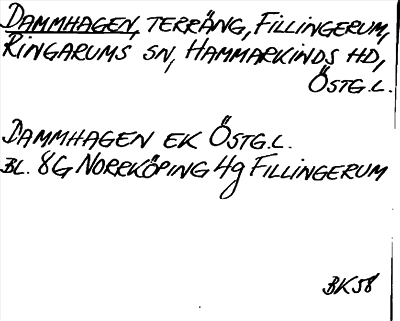 DAMMHAGEN, TERRÄNG, FILLINGERUM,
RINGARUMS SN, HAMMARKINDS HD,
ÖSTG.L.
DAMMHAGEN EK ÖSTG.L.
BL. 8G NORRKÖPING 4g FILLINGERUM
BK58